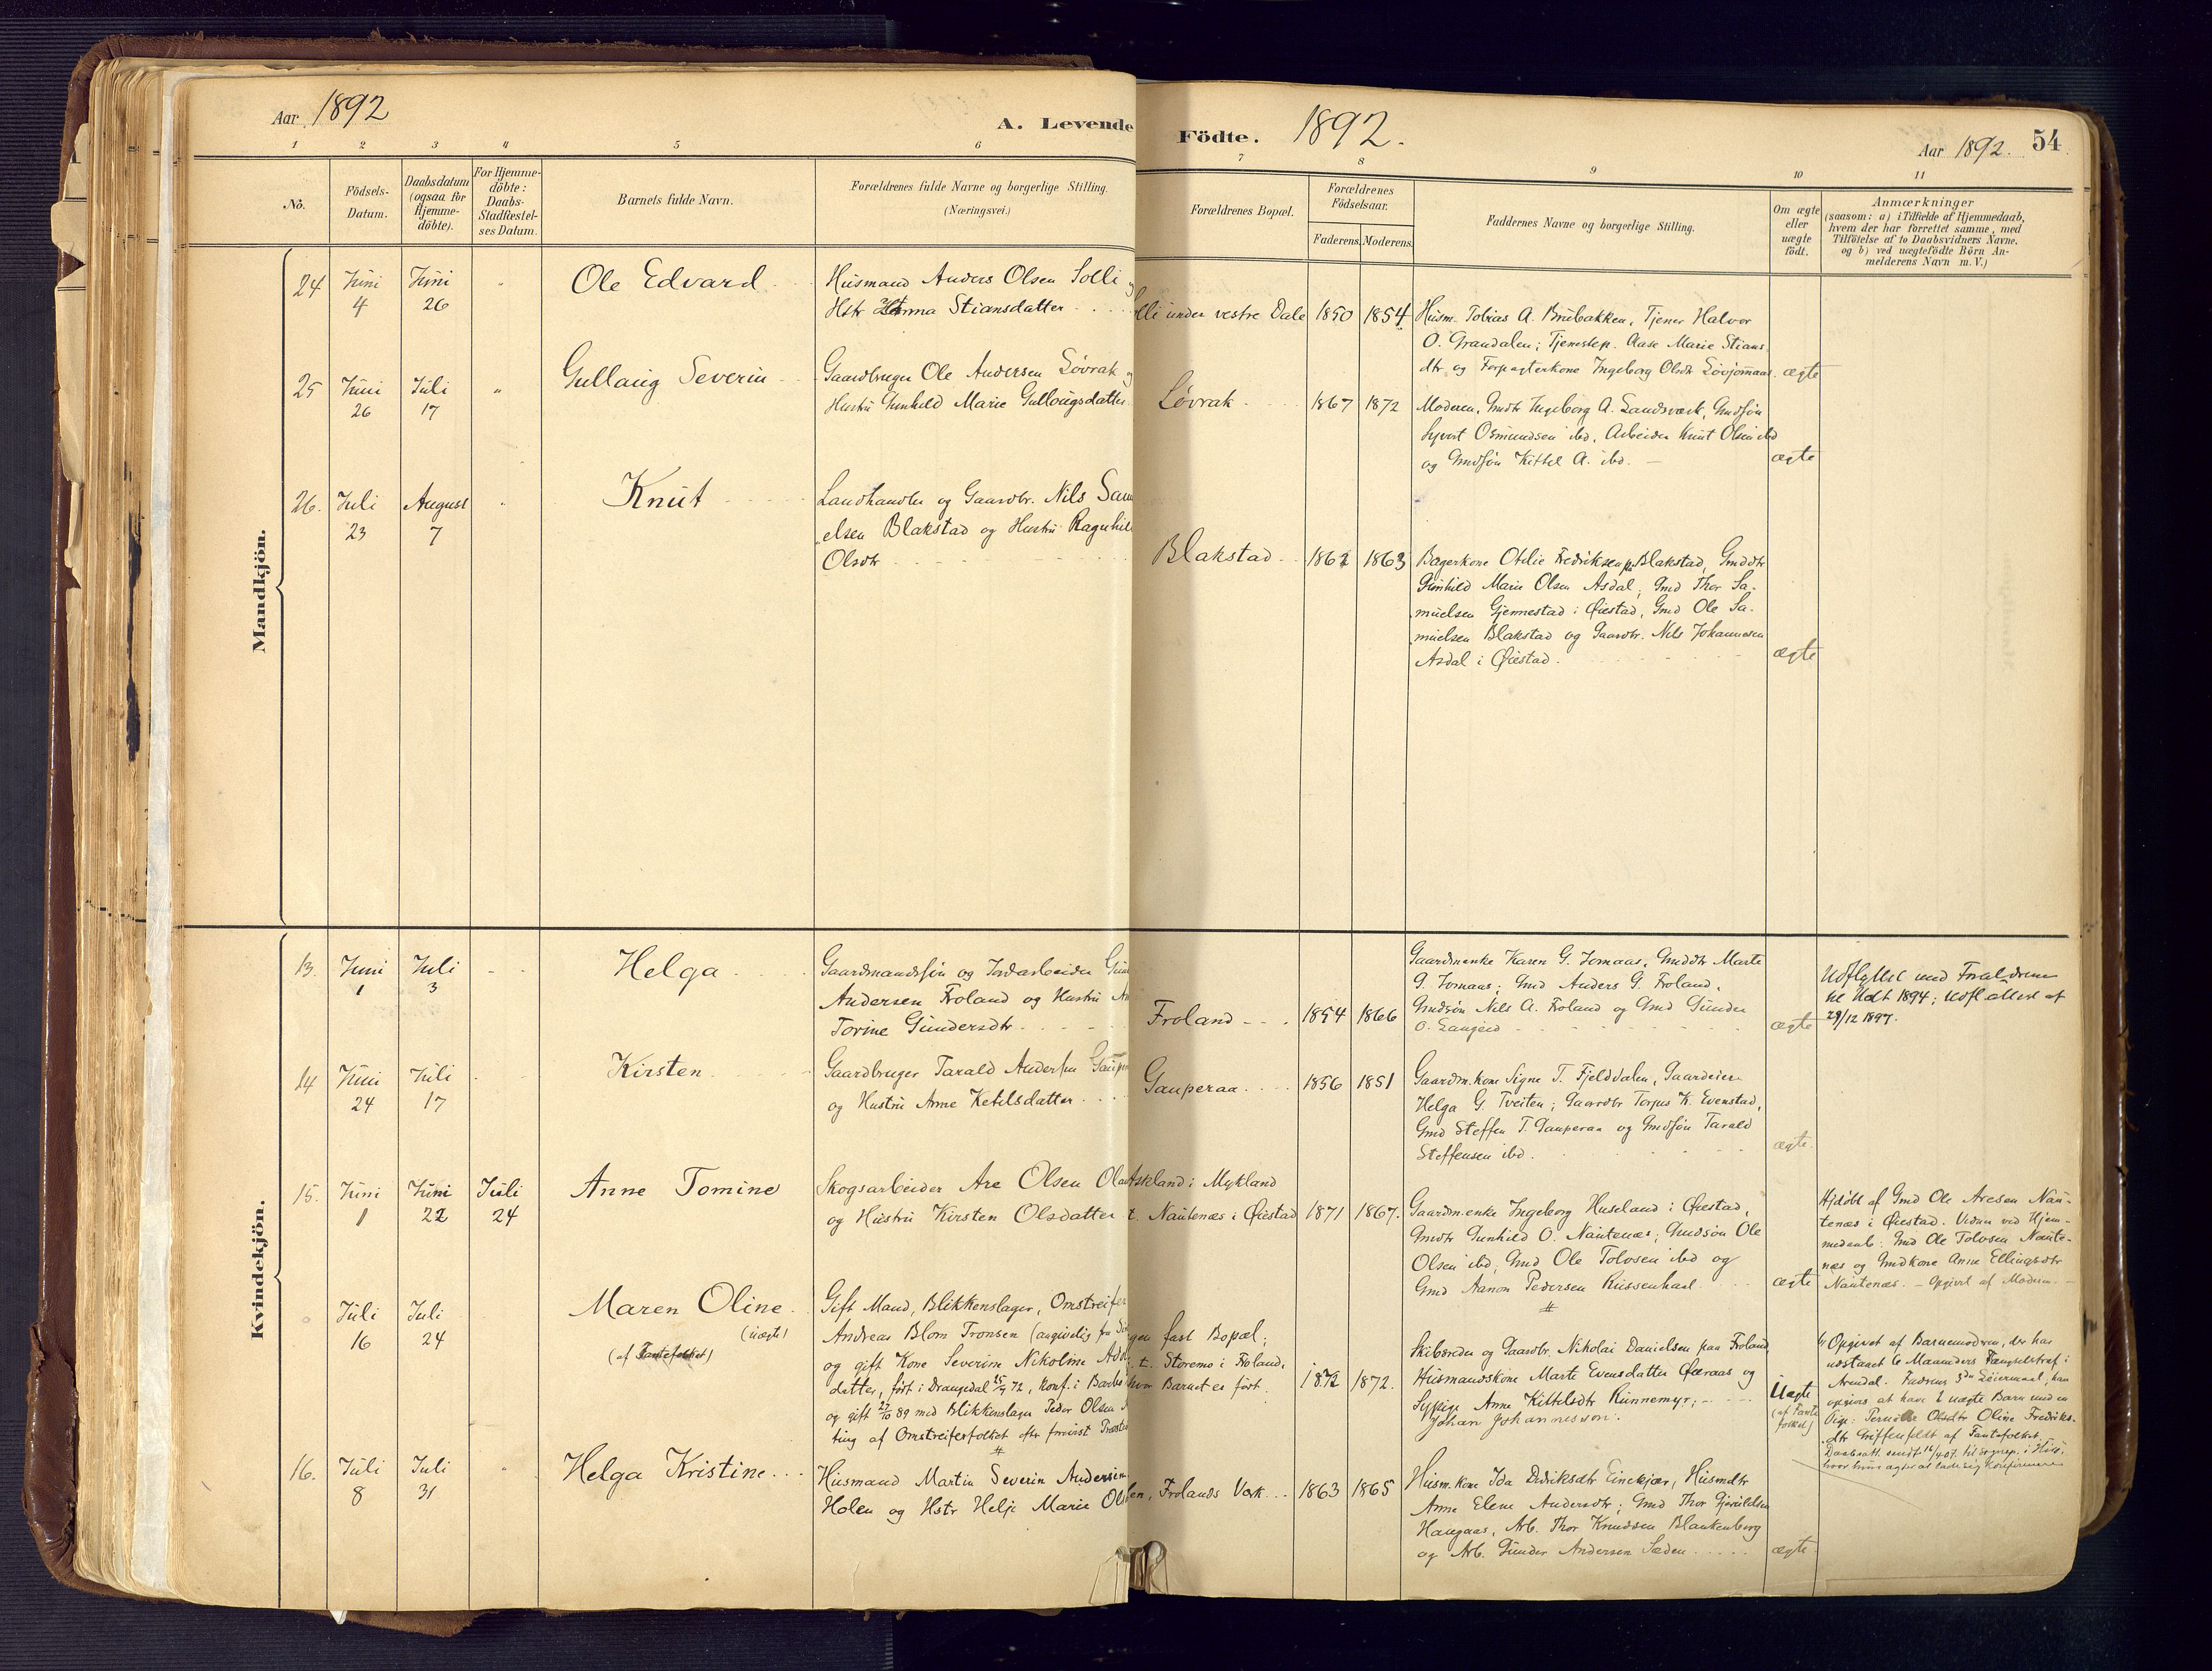 Aar 1892
A. Levende Födte. 1892.
Aar 1892. 54
1 2 3 4 5 6 7 8 9 10 11
No.
Födsels-
Datum.
Daabsdatum
(ogsaa for
Hjemme-
döbte).
For Hjemme-
döbte:
Daabs-
Stadfæstel-
ses Datum.
Barnets fulde Navn.
Forældrenes fulde Navne og borgerlige Stilling.
(Næringsvei.)
Forældrenes Bopæl.
Forældrenes
Födselsaar.
Faderens. Moderens.
Faddernes Navne og borgerlige Stilling.
Om ægte
eller
uægte
födt.
Anmærkninger
(saasom: a) i Tilfælde af Hjemmedaab,
hvem der har forrettet samme, med
Tilföielse af to Daabsvidners Navne,
og b) ved uægtefödte Börn An-
melderens Navn m. V.)
Mandkjön.
24 Juni 4 Juni 26
Ole Edvard
Husmand Anders Olsen Solli
Hstr Stiansdatter
lli under vestre Dale 1850 1854
Husm. Tobias A. Brubakken, Tjener Halvor
O. Grandalen; Tjenestep. Aase Marie Stians
dtr og Forpagterkone Ingeborg Olsdtr Løvjomaas. ægte
25 Juni 26 Juli 17
Gullaug Severin
Gaardbruger Ole Andersen Løvrak
Hustru Gunhild Marie Gullougsdatter
Løvrak 1867 1872
Moderen, Gmdtr Ingeborg A. Landsværk, Gmdsøn
Syvert Osmundsen ibd, Arbeider Knut Olsen ibd
og Gmdsøn Kittel A. ibd. ægte
26. Juli 23 August 7
Knut
Landhandler og Gaardbr. Nils Sam
elsen Blakstad og Hustru Ragnhil
Olsdtr
Blakstad 1862 1863
Bagerkone Otilie Fredriksen p. Blakstad, Gmddtr
Gunhild Marie Olsen Asdal; Gmd Thor Sa-
muelsen Gjennestad i Øiestad, Gmd Ole Sa-
muelsen Blakstad og Gaardbr. Nils Johannesen
Asdal i Øiestad. ægte
Kvindekjön.
13. Juni 1 Juli 3
Helga
Gaardmandssøn og Jordarbeider Gun
Andersen Froland og Hustru
Torine Gundersdtr
Froland 1854 1866
Gaardmenke Karen G. Jomaas, Gmddtr Marte
G. Jomaas; Gmd Anders G. Froland,
Gmdsøn Nils A. Froland og Gmd Gunder
O. Langeid ægte
Udflyttet med Forældrene
til Holt 1894; Udfl attest af
29/12 1897.
14 Juni 24 Juli 17
Kirsten
Gaardbruger Tarald Andersen Gauper
og Hustru Anne Ketilsdatter
Gauperaa 1856 1851
Gaardm.kone Signe T. Fjelddalen, Gaardeier
Helga G. Tveiten; Gaardbr Torjus K. Evenstad,
Gmd Steffen T. Gauperaa og Gmdsøn Tarald
Steffensen ibd. ægte.
15. Juni 1 Juni 22 Juli 24
Anne Tomine
Skogsarbeider Are Olsen Askland i Mykland
og Hustru Kirsten Olsdatter t. Nautenæs i Øiestad 1871 1867.
Gaardm.enke Ingeborg Huseland i Øiestad,
Gmdtr Gunhild O. Nautenæs; Gmdsøn Ole
Olsen ibd, Gmd Ole Tolvsen ibd og
Gmd Aanon Pedersen ægte
Hjdøbt af Gmd Ole Aresen Nau-
tenæs i Øiestad. Vidner ved Hjem-
medaab: Gmd Ole Tolvsen Naute-
næs og Gmdkone Anne Ellingsdtr
Nautenæs. – Opgivet af Moderen.
Juli 16 Juli 24
Maren Oline
(uægte)
(af Fantefolket)
Gift Mand, Blikkenslager, Omstreifer
Andreas Blom Tronsen (angivelig fra
og gift Kone Severine Nikoline
datter, født i Drangedal 25/9 72, konf. i
og gift 27/10 89 med Blikkenslager Peder Olsen
ting af Omstreiferfolket
gen fast Bopæl;
t. Storemo i Froland,
hvor Barnet er født.
1872 1872.
Skibsreder og Gaardbr. Nikolai Danielsen paa Froland,
Husmandskone Marte Evensdatter Øveraas og
Sypige Anne Kittelsdtr Runnemyr;
Johan Johannesson.
Uægte
(af Fante
folket)
Opgivet af Barnemodren, der har
udstaaet 6 Maaneders Fængselsstraf i
Arendal. Faderens 3die Leiermaal, han
opgives at have 2 uægte Børn med en
Pige: Olsdtr Oline Fredriks-
dtr Griffenfeldt af Fantefolket.
16. Juli 8 Juli 31
Helga Kristine
Husmand Martin Severin Andersen
Holen og Hstr Helje Marie
en, Frolands Værk 1863 1865
Husm.kone Ida Didriksdtr Einekjær, Husmdtr
Anne Elene Andersdtr; Gmd Thor Gjeruldsen
Haugaas, Arb. Thor Knudsen Blankenberg
og Arb. Gunder Andersen Sæden ægte